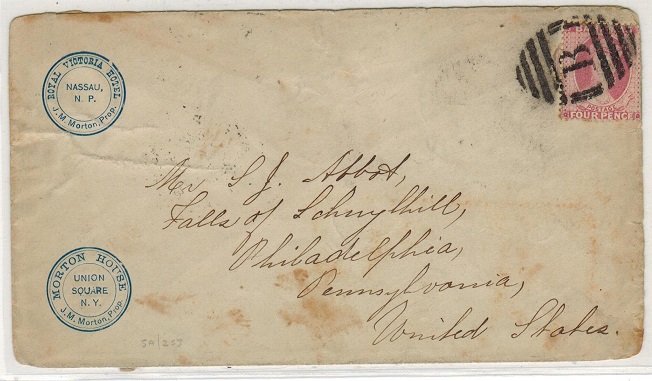 ROYAL VICTORIA HOTEL
NASSAU,
N. P.
J. M. Morton, Prop.
B
POSTAGE
FOUR PENCE
Mr S. J. Abbot,
Falls of Schuylkill,
Philadelphia,
Pennsylvania,
United States.
MORTON HOUSE
UNION
SQUARE
N. Y.
J. M. Morton, Prop.